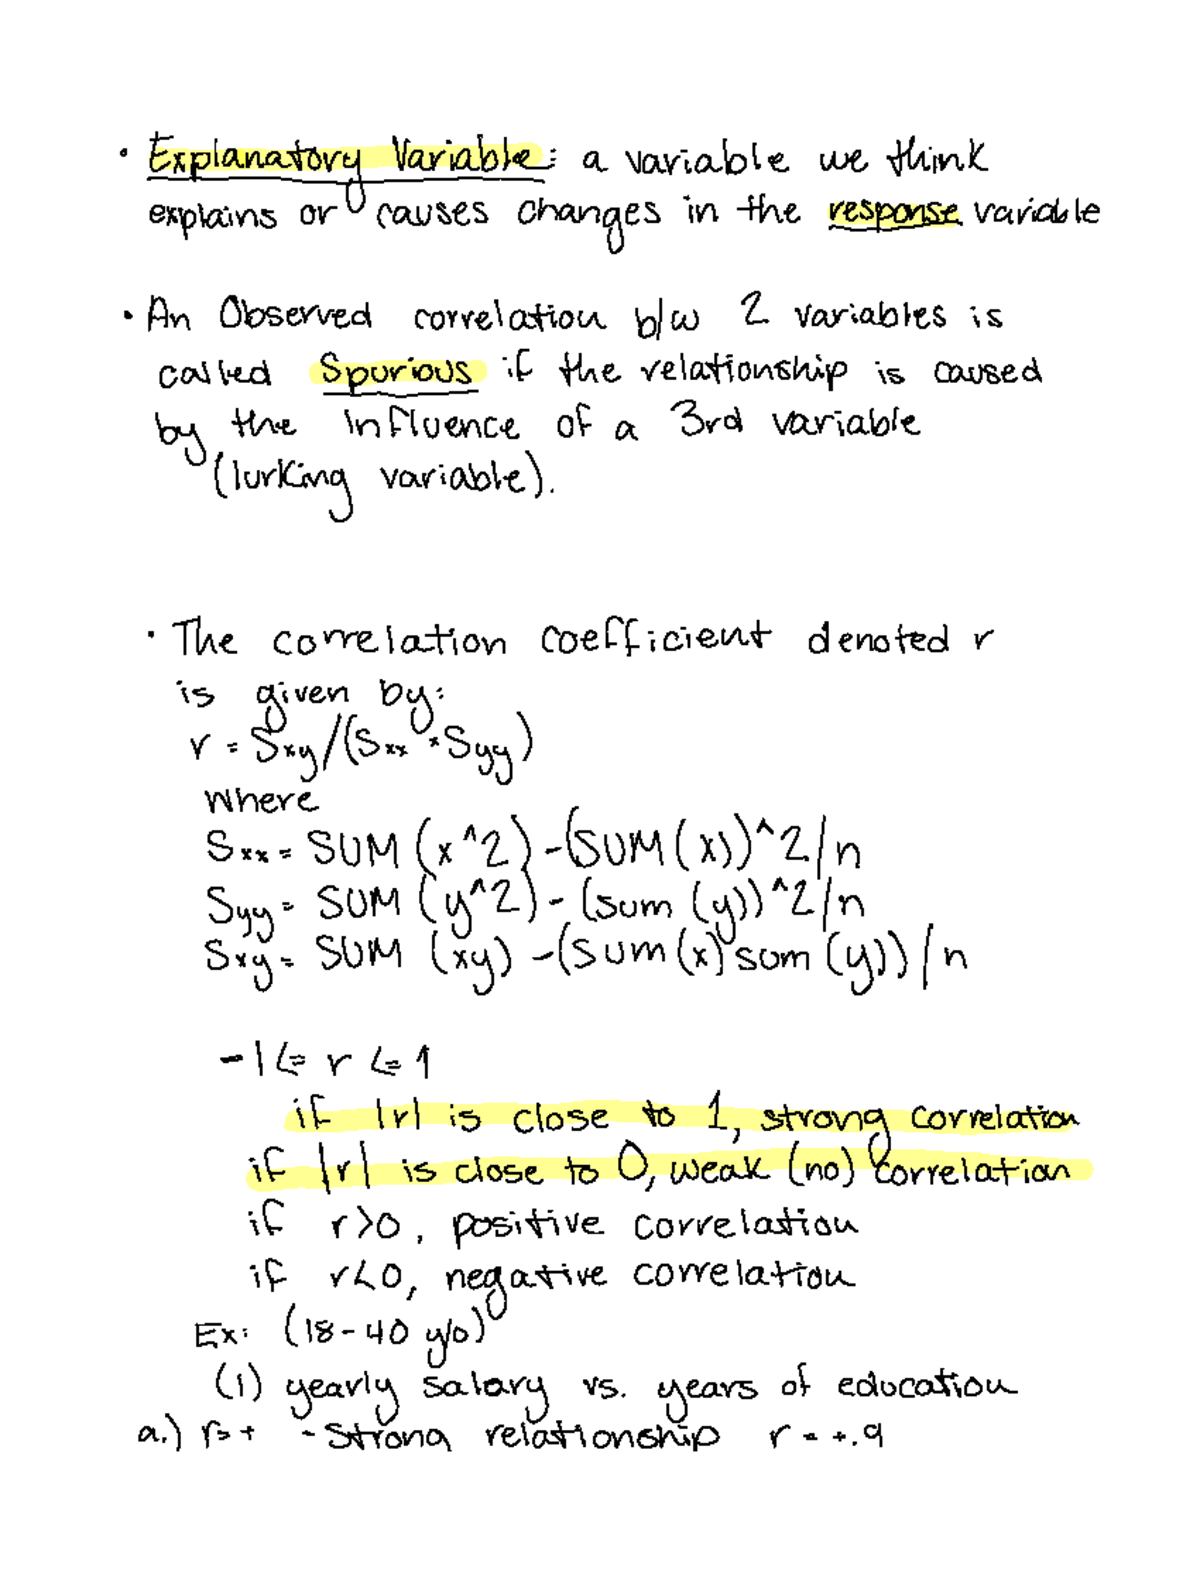 • Explanatory Variable: a variable we think
explains or causes changes in the response variable
• An Observed correlation b/w 2 variables is
called Spurious if the relationship is caused
by the influence of a 3rd variable
(lurking variable).
• The correlation coefficient denoted r
is given by:
r = Sxy/(Sxx * Syy)
where
Sxx = SUM (x^2) - (SUM(x))^2/n
Syy = SUM (y^2) - (sum (y))^2/n
Sxy = SUM (xy) - (sum(x) sum (y))/n
-1 <= r <= 1
if |r| is close to 1, strong correlation
if |r| is close to 0, weak (no) correlation
if r>0, positive correlation
if r<0, negative correlation
Ex: (18-40 y/o)
(1) yearly salary vs. years of education
a.) r= + - strong relationship r = +.9